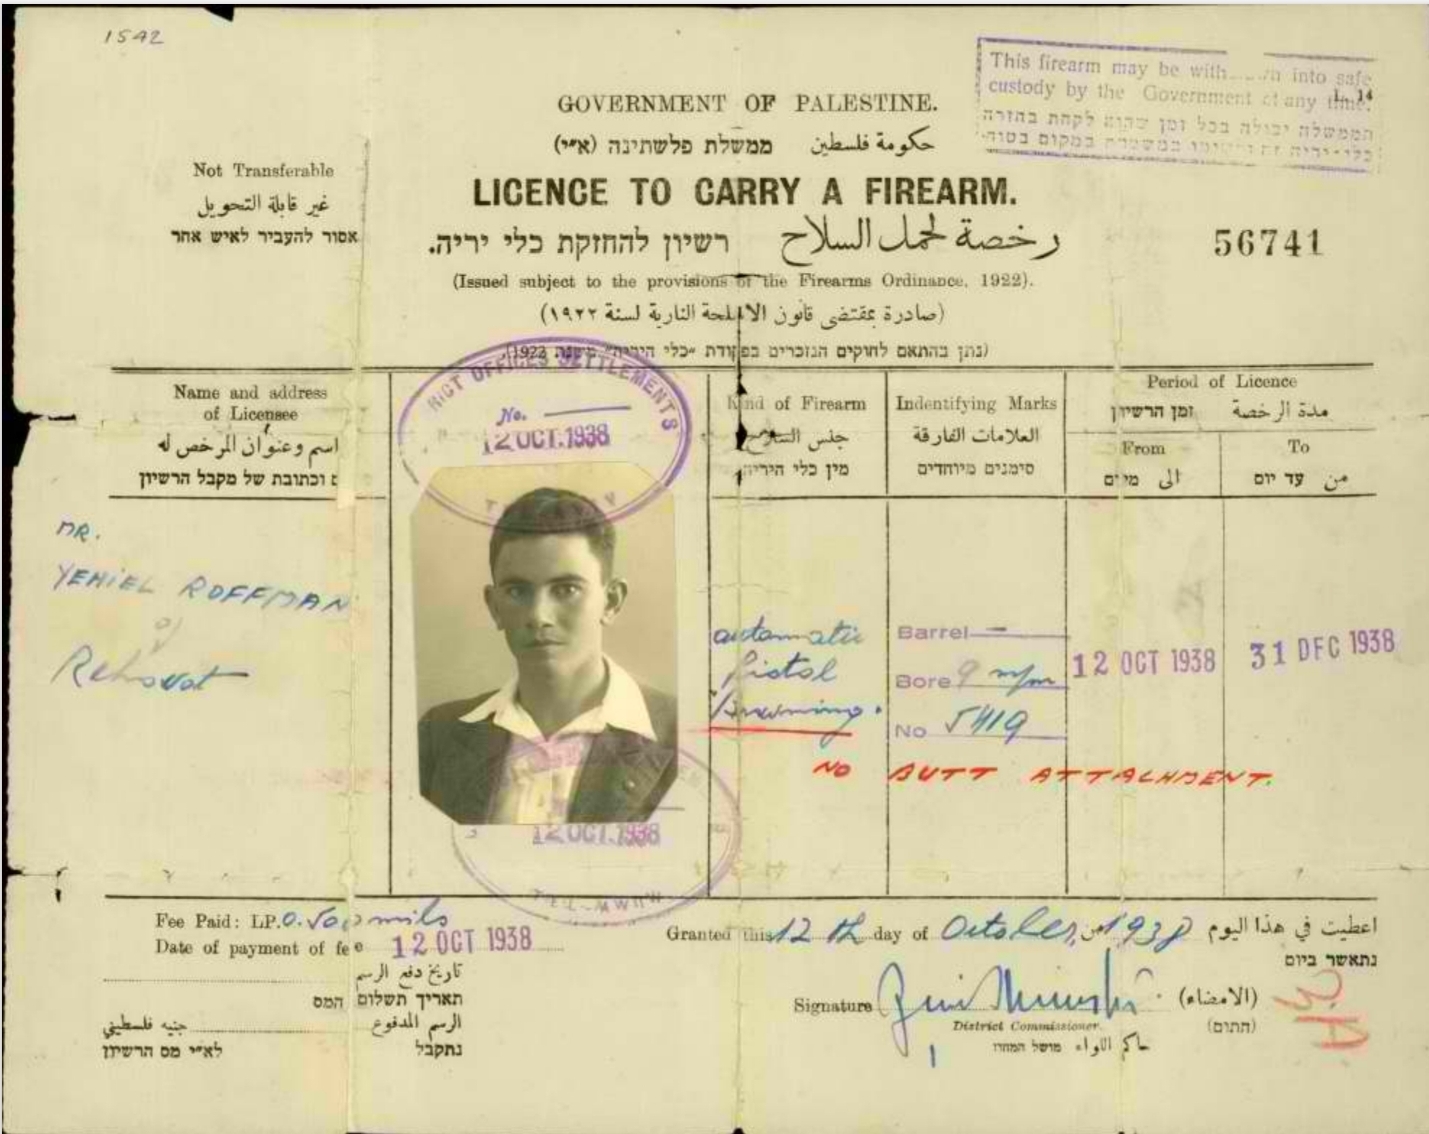 1542
This firearm may be with into safe
custody by the Government at any time.
L. 14
הממשלה יכולה בכל זמן לקחת בחזרה
כלי-יריה זה במשמרת במקום בטוח
GOVERNMENT OF PALESTINE.
ממשלת פלשתינה (א״י) حكومة فلسطين
Not Transferable
غير قابلة التحويل
אסור להעביר לאיש אחר
LICENCE TO CARRY A FIREARM.
רשיון להחזקת כלי יריה. رخصة لحمل السلاح
56741
(Issued subject to the provisions of the Firearms Ordinance, 1922).
(صادرة بمقتضى قانون الاسلحة النارية لسنة ١٩٢٢)
(נתן בהתאם לחוקים הנזכרים בפקודת "כלי היריה" משנת 1922).
Name and address
of Licensee
اسم وعنوان المرخص له
וכתובת של מקבל הרשיון
RICT OFFICES SETTLEMENTS
No.
12 OCT. 1938
Kind of Firearm
جنس السلاح
מין כלי היריה
Indentifying Marks
العلامات الفارقة
סימנים מיוחדים
Period of Licence
זמן הרשיון مدة الرخصة
From
מיום الى
To
עד יום من
MR.
YEHIEL ROFFMAN
of
Rehovot
automatic
pistol
Browning.
Barrel —
Bore 9 m/m
No 5419
12 OCT 1938
31 DEC 1938
NO BUTT ATTACHMENT.
12 OCT. 1938
Fee Paid: LP. 0.500 mils
Date of payment of fee 12 OCT 1938
تاريخ دفع الرسم
תאריך תשלום המס
الرسم المدفوع جنيه فلسطيني
נתקבל לא״י מס הרשיון
Granted this 12 th day of October, 1938 من اعطيت في هذا اليوم
נתאשר ביום
Signature (الامضاء)
(חתום)
District Commissioner.
מושל המחוז حاكم اللواء